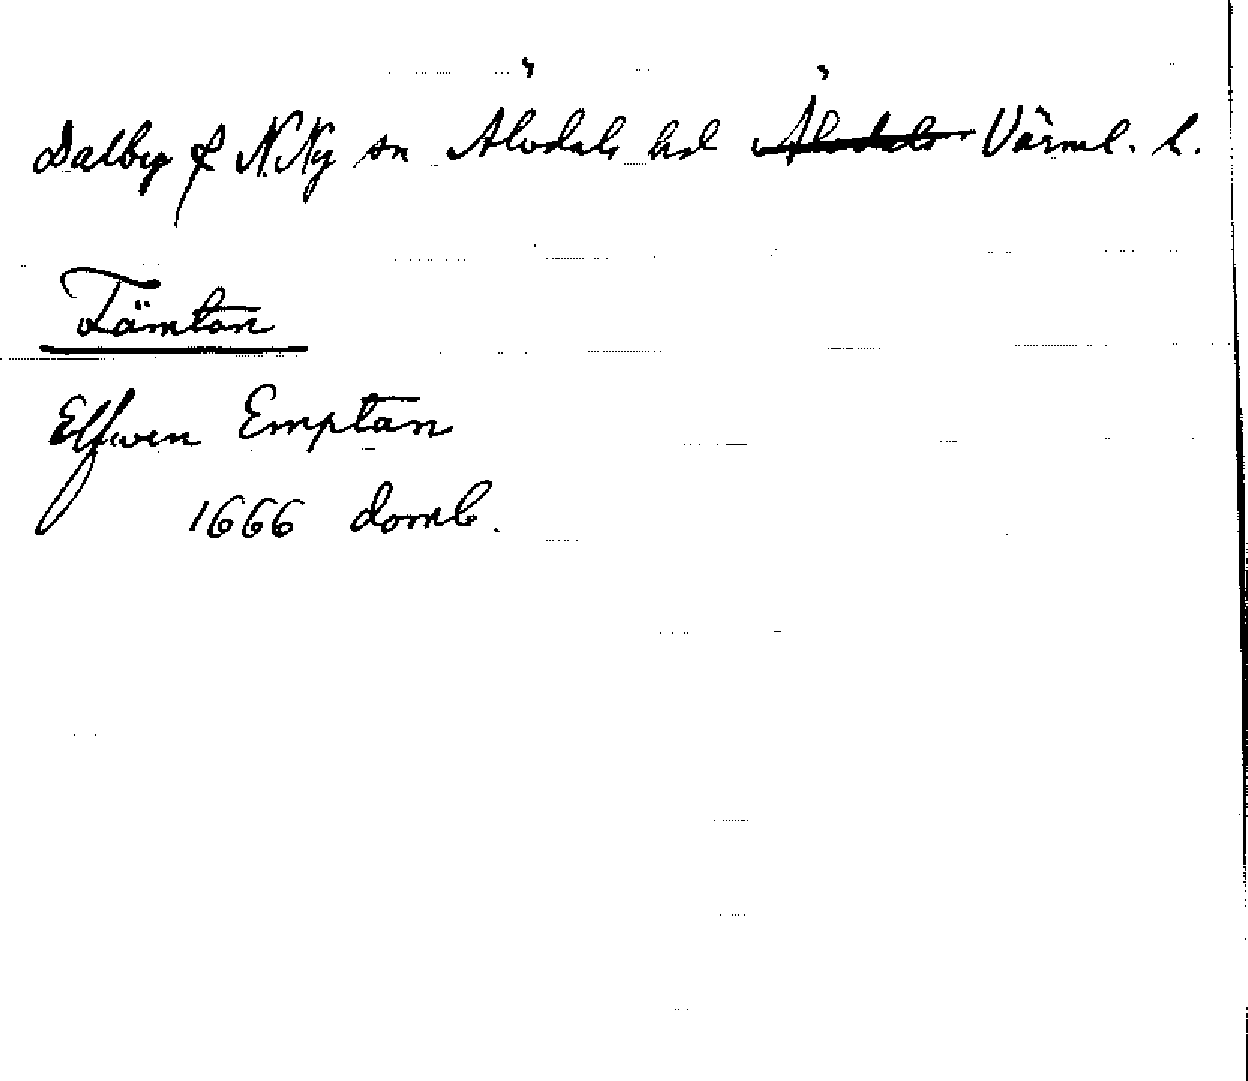 Dalby o N. Ny sn Älvdals hd Älvdals Värml. l.
Jämtan
Elfwen Emptan
1666 domb.